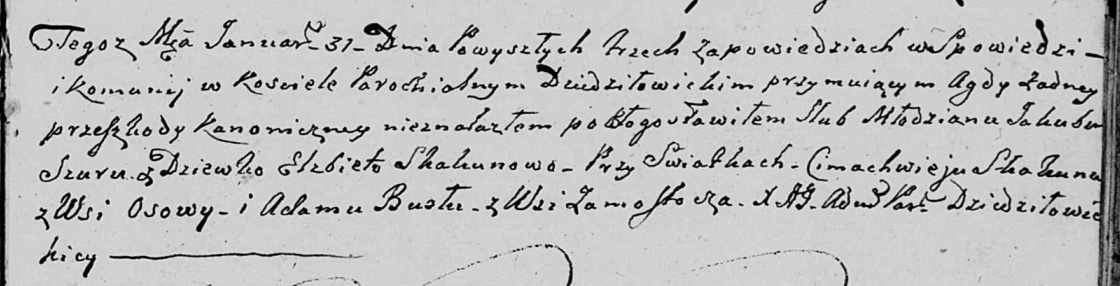 Tegoz Mca Januar. 31 - Dnia Powyszłych trzech Zapowiedziach w Spowiedzi -
i Komunij w Kosciele Parochialnym Dziedziłowickim przymuiącym Agdy Zadney
przeszkody Kanoniczney nieznalazłem pobłogosławiłem Slub Młodzianu Jakubu
Szuru z Dziewko Elzbieto Skakunowo - Przy Swiatkach - Cimachwieju Skakunu
z Wsi Osowy - i Adamu Busłu - z Wsi Zamostocza - X AJ - Adm Par. Dziedziłowic
kicy